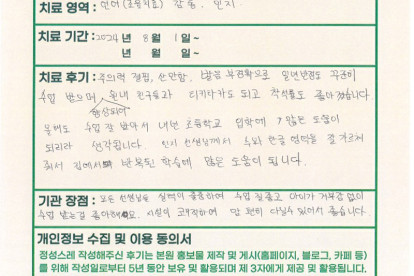 치료 영역 : 언어(조음치료) 감통, 인지
치료 기간 : 2024 년 8 월 1 일 ~
년 월 일 ~
치료 후기 : 주의력 결핍, 산만함, 발음 부정확으로 일년반정도 꾸준히
수업 받으며 원내 친구들과 티키타카도 되고 착석도 좋아졌습니다.
향상되어
올해도 수업 잘 받아서 내년 초등학교 입학에 많은 도움이
되리라 생각됩니다. 인지 선생님께서 수와 한글 영역을 잘 가르쳐
줘서 집에서도 반복된 학습에 많은 도움이 됩니다.
기관 장점 : 모든 선생님들 실력이 출중하여 수업 질 좋고 아이가 거부감 없이
수업 받는걸 좋아해요. 시설이 쾌적하여 맘 편히 다닐수 있어서 좋습니다.
개인정보 수집 및 이용 동의서
정성스레 작성해주신 후기는 본원 홍보물 제작 및 게시(홈페이지, 블로그, 카페 등)
를 위해 작성일로부터 5년 동안 보유 및 활용되며 제 3자에게 제공 및 활용됩니다.